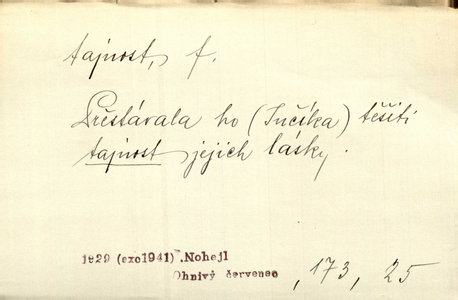 tajnost, f.
Přestávala ho (Inčíka) těšiti
tajnost jejich lásky.
1929 (exc1941) .Nohejl
Ohnivý červenec , 173, 25